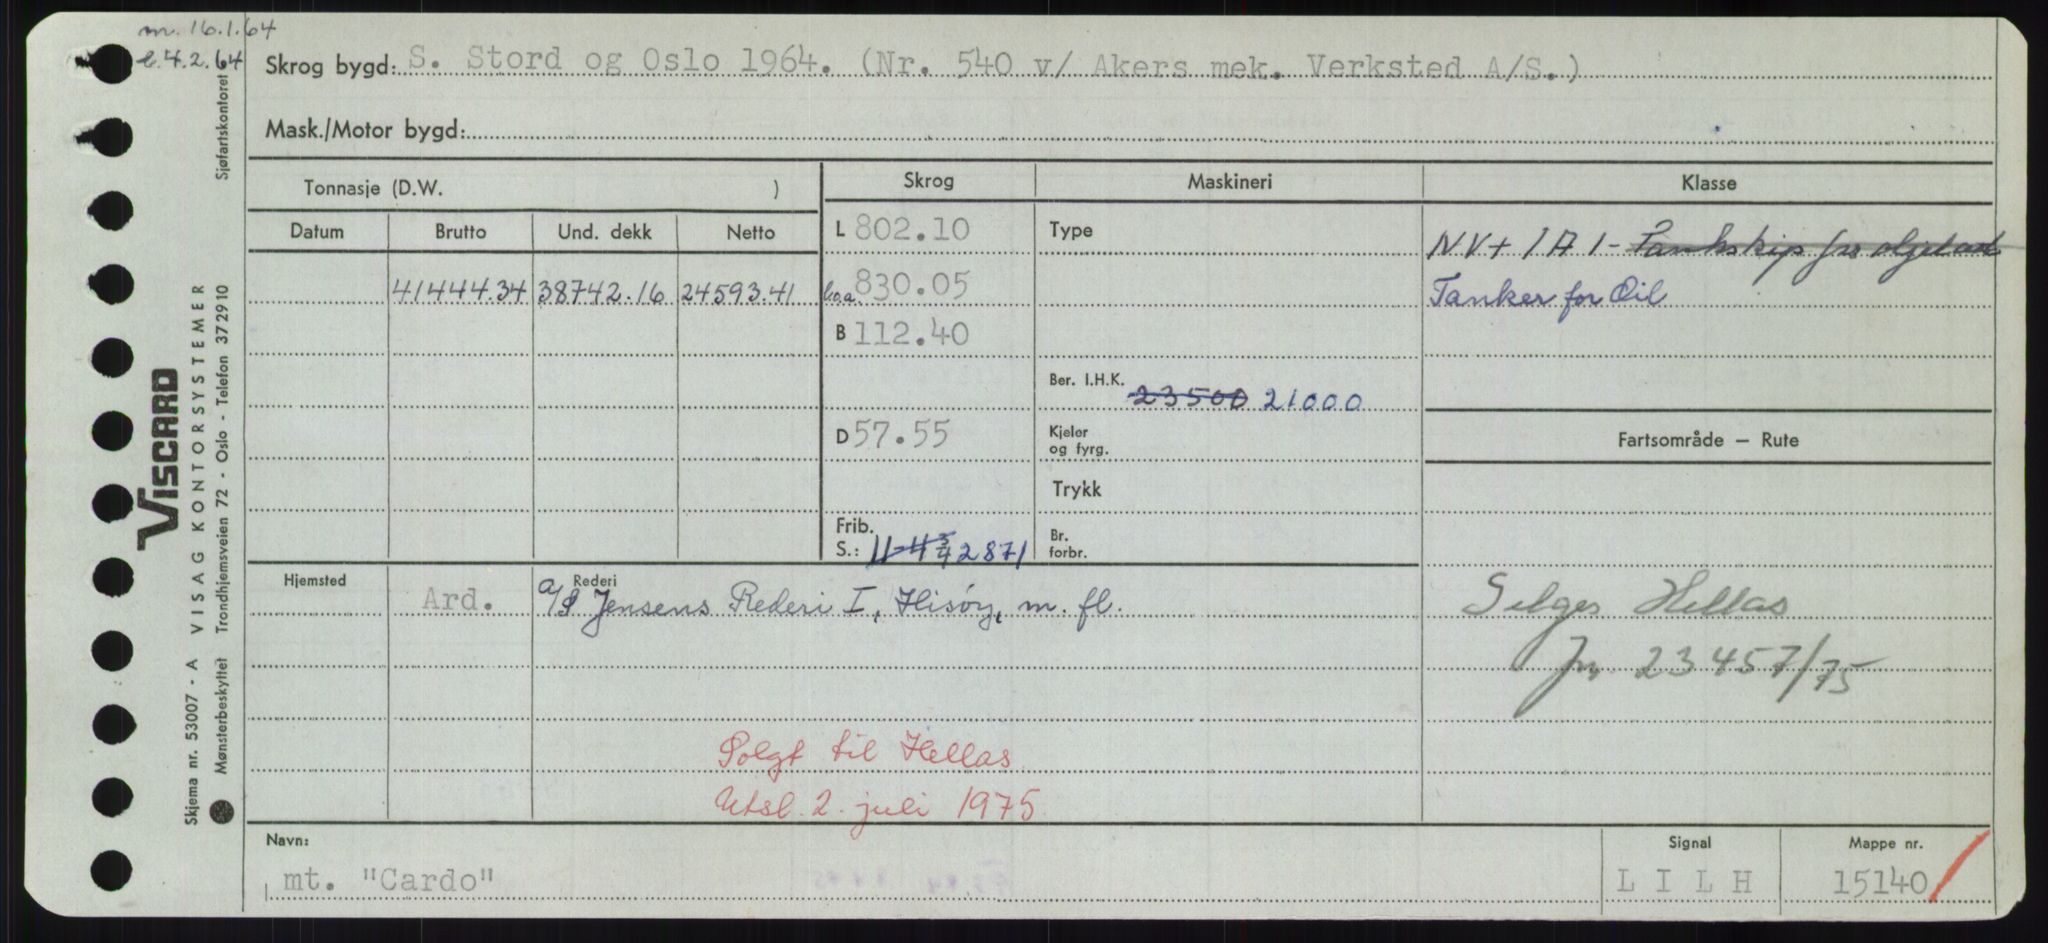 m. 16.1.64
b. 4.2.64
Skrog bygd: S. Stord og Oslo 1964. (Nr. 540 v/ Akers mek. Verksted A/S.)
Mask./Motor bygd:
Tonnasje (D.W. )
Skrog
Maskineri
Klasse
Datum Brutto Und. dekk Netto
L 802.10
Type
NV + 1 A 1 - Tankskip for
41444.34 38742.16 24593.41
l.o.a. 830.05
Tanker for Oil
B 112.40
Ber. I.H.K.
23500 21000
D 57.55
Kjeler
og fyrg.
Fartsområde – Rute
Trykk
Frib.
S.: 11-4 3/4 2871
Br.
forbr.
Hjemsted
Ard.
Rederi
A/S Jensens Rederi I, Hisöy, m. fl.
Selges Hellas
Jn. 23457/75
Solgt til Hellas
Utsl. 2. juli 1975
Navn:
mt. "Cardo"
Signal
L I L H
Mappe nr.
15140
Sjøfartskontoret
VISCARD
VISAG KONTORSYSTEMER
Trondhjemsveien 72 - Oslo - Telefon 372910
Skjema nr. 53007 - A
Mønsterbeskyttet